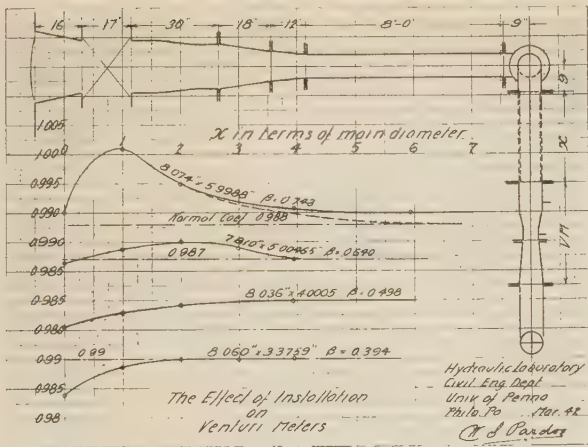 16" 17" 30" 18" 12" 8'-0" 9"
9
x
VM
1.005
x in terms of main diameter
1.000
0 1 2 3 4 5 6 7
0.995
8.074" x 5.9988" β = 0.743
0.990
Normal Coef 0.988
0.990
0.987
7.810" x 5.00465 β = 0.640
0.985
0.985
8.036" x 4.0005 β = 0.498
0.98
0.99
0.99
8.060" x 3.3759" β = 0.394
0.985
0.98
The Effect of Installation
on
Venturi Meters
Hydraulic Laboratory
Civil Eng Dept
Univ of Penna
Phila. Pa Mar. 42
W S Pardoe